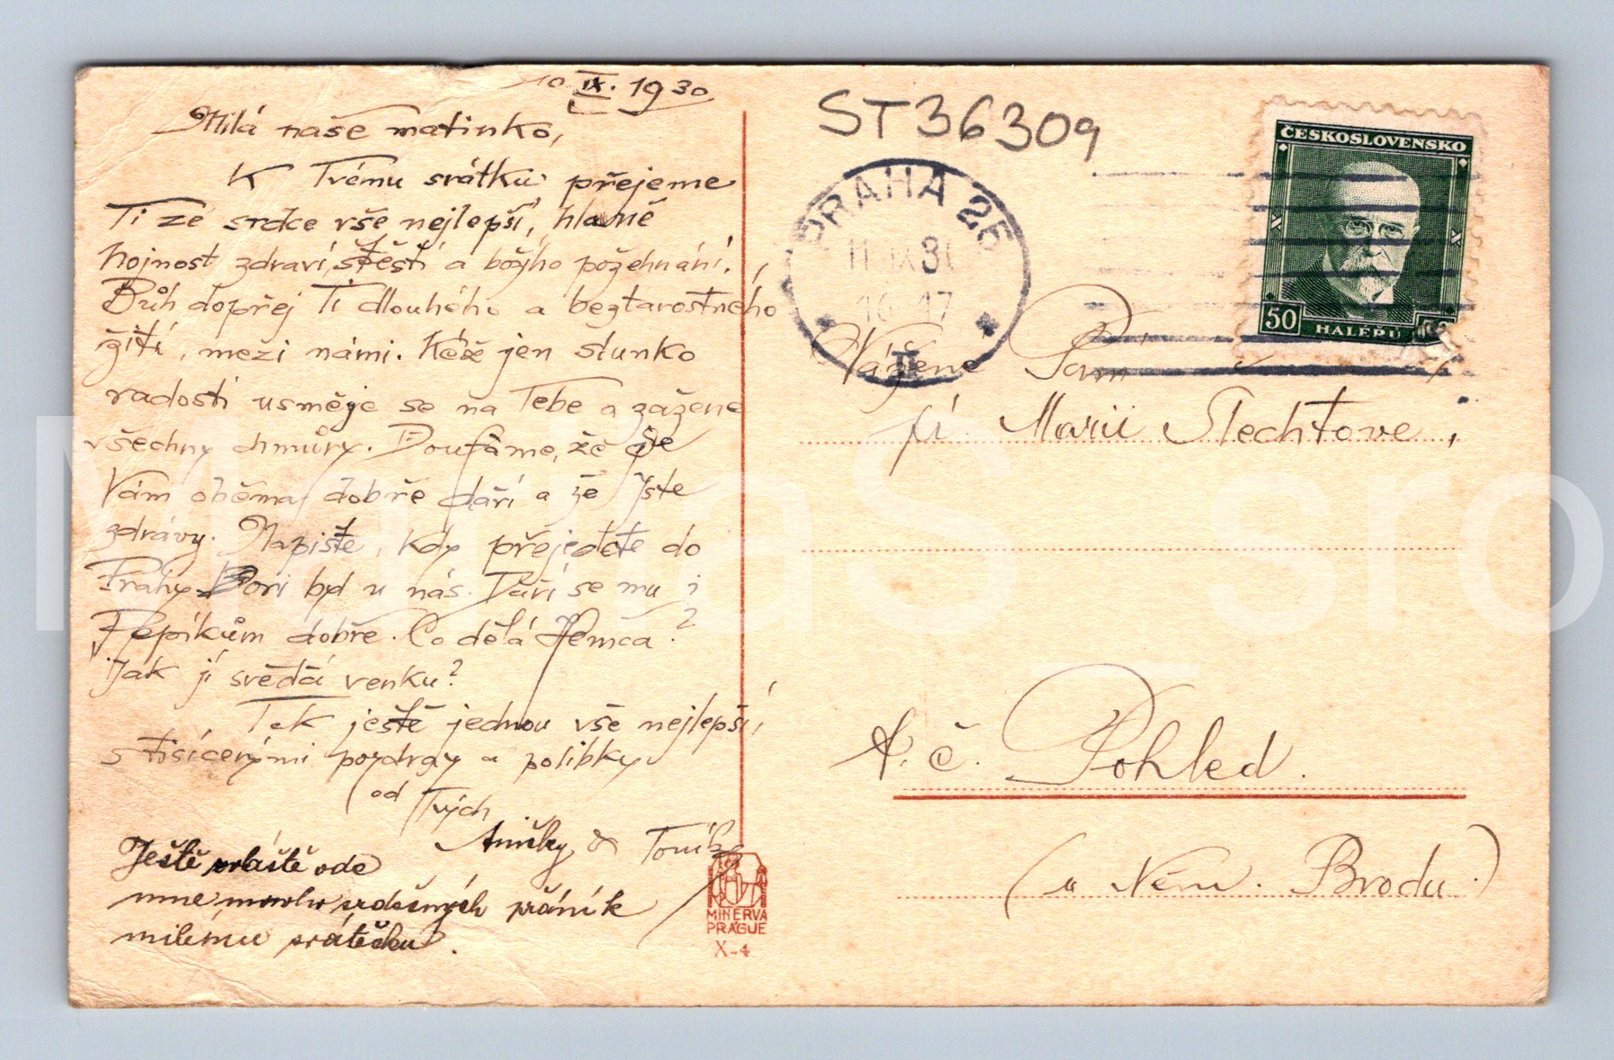 10 IX. 1930
Milá naše matinko,
K Tvému svátku přejeme
Ti ze srdce vše nejlepší, hlavně
hojnost zdraví, štěstí a božího požehnání.
Bůh dopřej Ti dlouhého a bezstarostného
žití, mezi námi. Kéž jen slunko
radosti usměje se na Tebe a zažene
všechny chmůry. Doufáme, že se
Vám oběma dobře daří a že jste
zdrávy. Napište, kdy přejedete do
Prahy. byl u nás. Daří se mu i
Pepíkům dobře. Co dělá
Jak jí svědčí venku?
Tak ještě jednou vše nejlepší,
s tisícerými pozdravy a polibky
od Tvých
Aničky a
Ještě zvláště ode
mne mnoho srdečných přáníček
milému svátečku.
ST36309
PRAHA 25
11.IX 3
16-17
II
ČESKOSLOVENSKO
50
HALÉŘŮ
Vážené Paní
pí Marii Šlechtove,
Pohled.
(u Něm. Brodu.)
MINERVA
PRAGUE
X-4